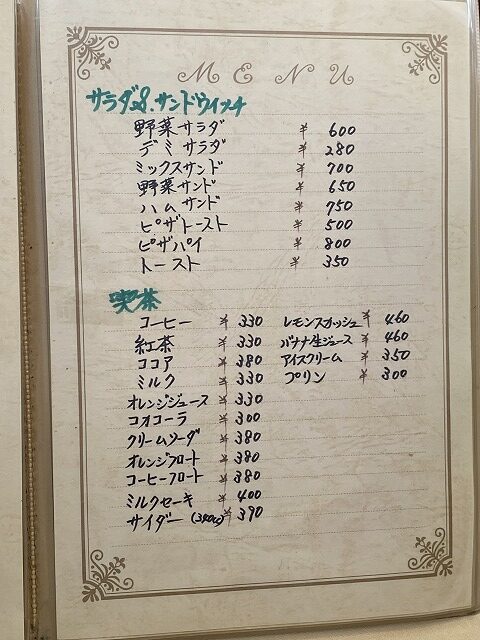 MENU
サラダ&サンドウイッチ
野菜サラダ ¥ 600
デミサラダ ¥ 280
ミックスサンド ¥ 700
野菜サンド ¥ 650
ハムサンド ¥ 750
ピザトースト ¥ 500
ピザパイ ¥ 800
トースト ¥ 350
喫茶
コーヒー ¥ 330
紅茶 ¥ 330
ココア ¥ 380
ミルク ¥ 330
オレンジジュース ¥ 330
コオコーラ ¥ 300
クリームソーダ ¥ 380
オレンジフロート ¥ 380
コーヒーフロート ¥ 380
ミルクセーキ ¥ 400
サイダー (340cc) ¥ 390
レモンスカッシュ ¥ 460
バナナ生ジュース ¥ 460
アイスクリーム ¥ 350
プリン ¥ 300